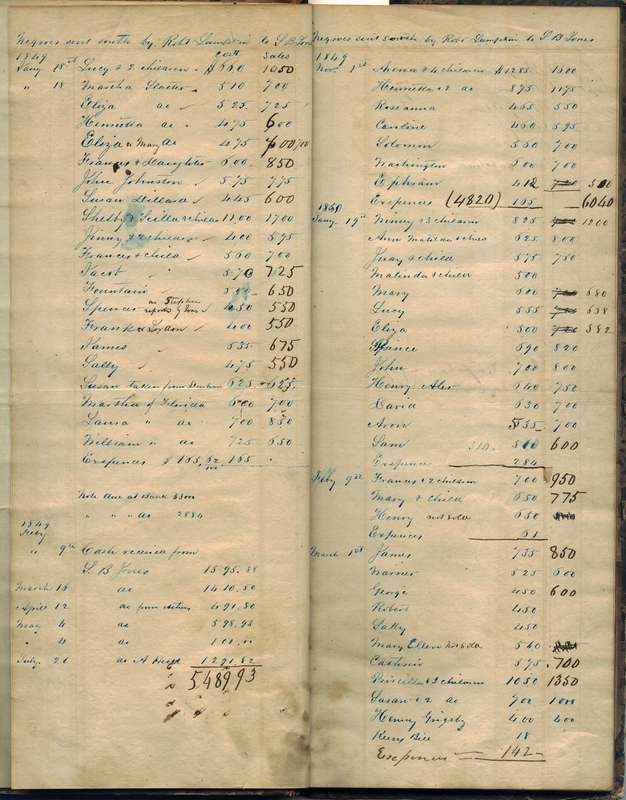 Negroes sent south by Robt Lumpkin to S B Jones
1849 Cost Sales
Jany 18th Lucy & 2 children $ 1050
" 18 Martha 510 700
Eliza do 525 725
Henrietta do 475 600
Eliza Mary do 475 700
Frances & Daughter 600 850
John Johnston 575 775
Susan Dillard 445 600
Shelby Scilla & child 1700
Jinny & 2 children 400 595
Frances & child 500 700
Jacob 570 725
Fountain 500 650
Spencer as Stephen reported by Jones 450 550
Frank 400 550
James 535 675
Sally 475 550
Susan taken from 625 625
Martha of Florida 600 700
Laura " do 700 850
William " do 725 650
Expences $ 165,62 165
Note due at Bank
" " " do 2884
1849
Feby
" 9th Cash received from
S. B Jones 1595.88
March 15 do 1410.80
April 12 do from 491.80
May 4 do 598.93
" 4 do 101.00
July 26 do 1291.52
5489,93
Negroes sent south by Robt Lumpkin to S B Jones
1849
Nov. 1st & 4 children $1285 1600
Henrietta & 2 do 875 1175
Roseanna 465 550
Caroline 460 595
Solomon 550 700
Washington 600 700
Ephraim 412 500
Expences (4820) 135 6040
1850
Jany 19th & 3 children 825 1200
Ann Matilda & child 625 800
Judy & child 575 750
Malinda & child 500
Mary 600 680
Lucy 555 638
Eliza 500 582
Prince 690 820
John 700 800
Henry Alex 640 750
David 630 700
Aron 555 700
Sam 510 510 600
Expences 284
Feby 9th Frances & 2 children 700 950
Mary & child 650 775
Henry not sold 650
Expences 61
March 1st James 735 850
Warner 525 600
George 450 600
Robert 450
Sally 450
Mary Ellen not sold 540
Cashmir 575 700
Priscilla & 3 children 1050 1350
Susan & 2 do 900 1000
Henny Grigsby 400 400
Keys Bill 18
Expences 142